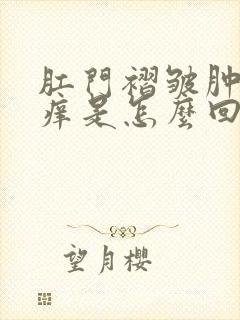 肛門褶皺肿
痒是怎麼回
望月櫻